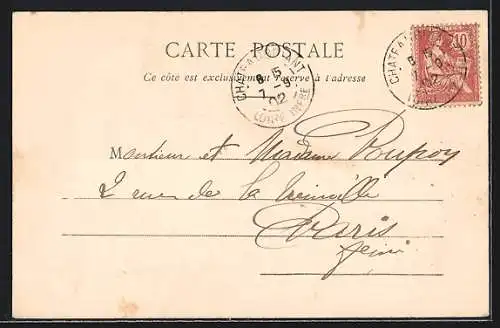 CARTE POSTALE
Ce côté est exclusivement réservé à l'adresse
CHATEAUBRIANT
8 5
7 -9
02
LOIRE INFRE
10
Monsieur et Madame Poupoy
2 rue de la
Paris
Seine